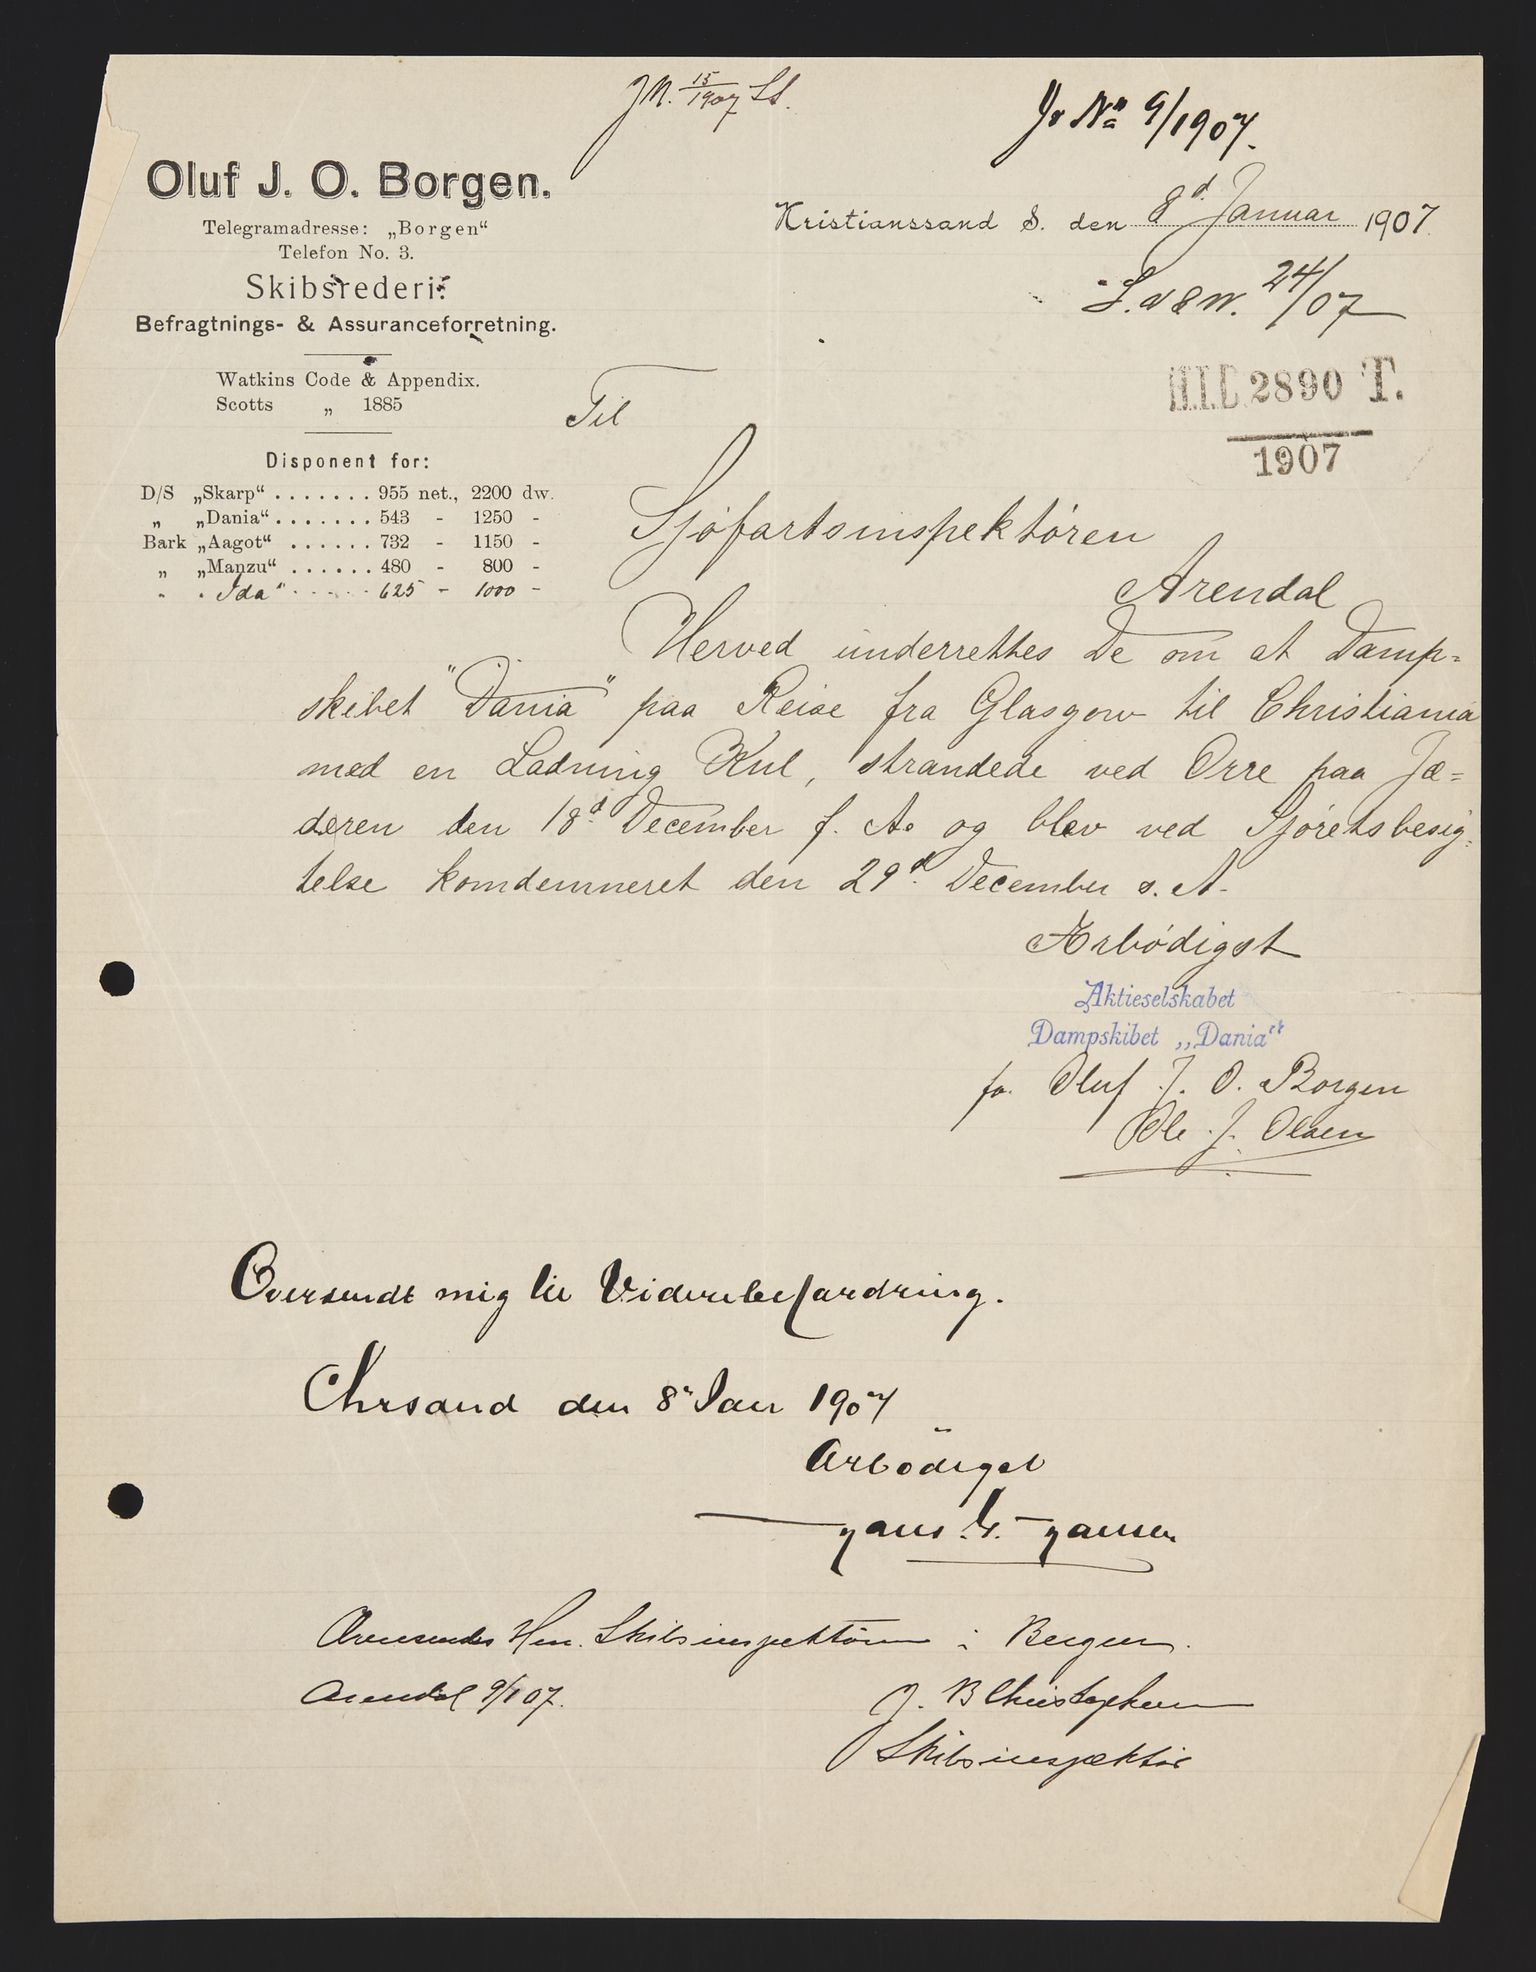 J.N. 15/1907 St.
Jr No 9/1907.
Oluf J. O. Borgen.
Telegramadresse: „Borgen“
Telefon No. 3.
Skibsrederi.
Befragtnings- & Assuranceforretning.
Watkins Code & Appendix.
Scotts „ 1885
Disponent for:
D/S „Skarp“ ....... 955 net., 2200 dw.
„ „Dania“ ....... 543 - 1250 -
Bark „Aagot“ ...... 732 - 1150 -
„ „Manzu“ ...... 480 - 800 -
" "Ida" ...... 625 - 1000 -
Kristianssand S. den 8d Januar 1907.
24/07
2890 T.
1907
Til
Sjøfartsinspektøren
Arendal
Herved underrettes De om at Damp=
skibet "Dania" paa Reise fra Glasgow til Christiania
med en Ladning Kul, strandede ved Orre paa Jæ=
deren den 18d December f. A. og blev ved Sjøretsbesig=
telse komdemneret den 29d December s. A.
Ærbødigst
Aktieselskabet
Dampskibet „Dania“
for Oluf J. O. Borgen
Ole J. Olsen
Oversendt mig til Viderebefardring.
Chrsand den 8' Jan 1907
Ærbødigst
Hans Hansen
Oversendes Hrr. Skibsinspektøren i Bergen.
Arendal 9/1 07.
J. B Christophersen
Skibsinspektør